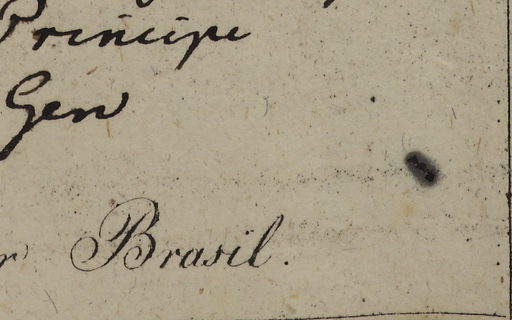 Principe
Gen
r Brasil.